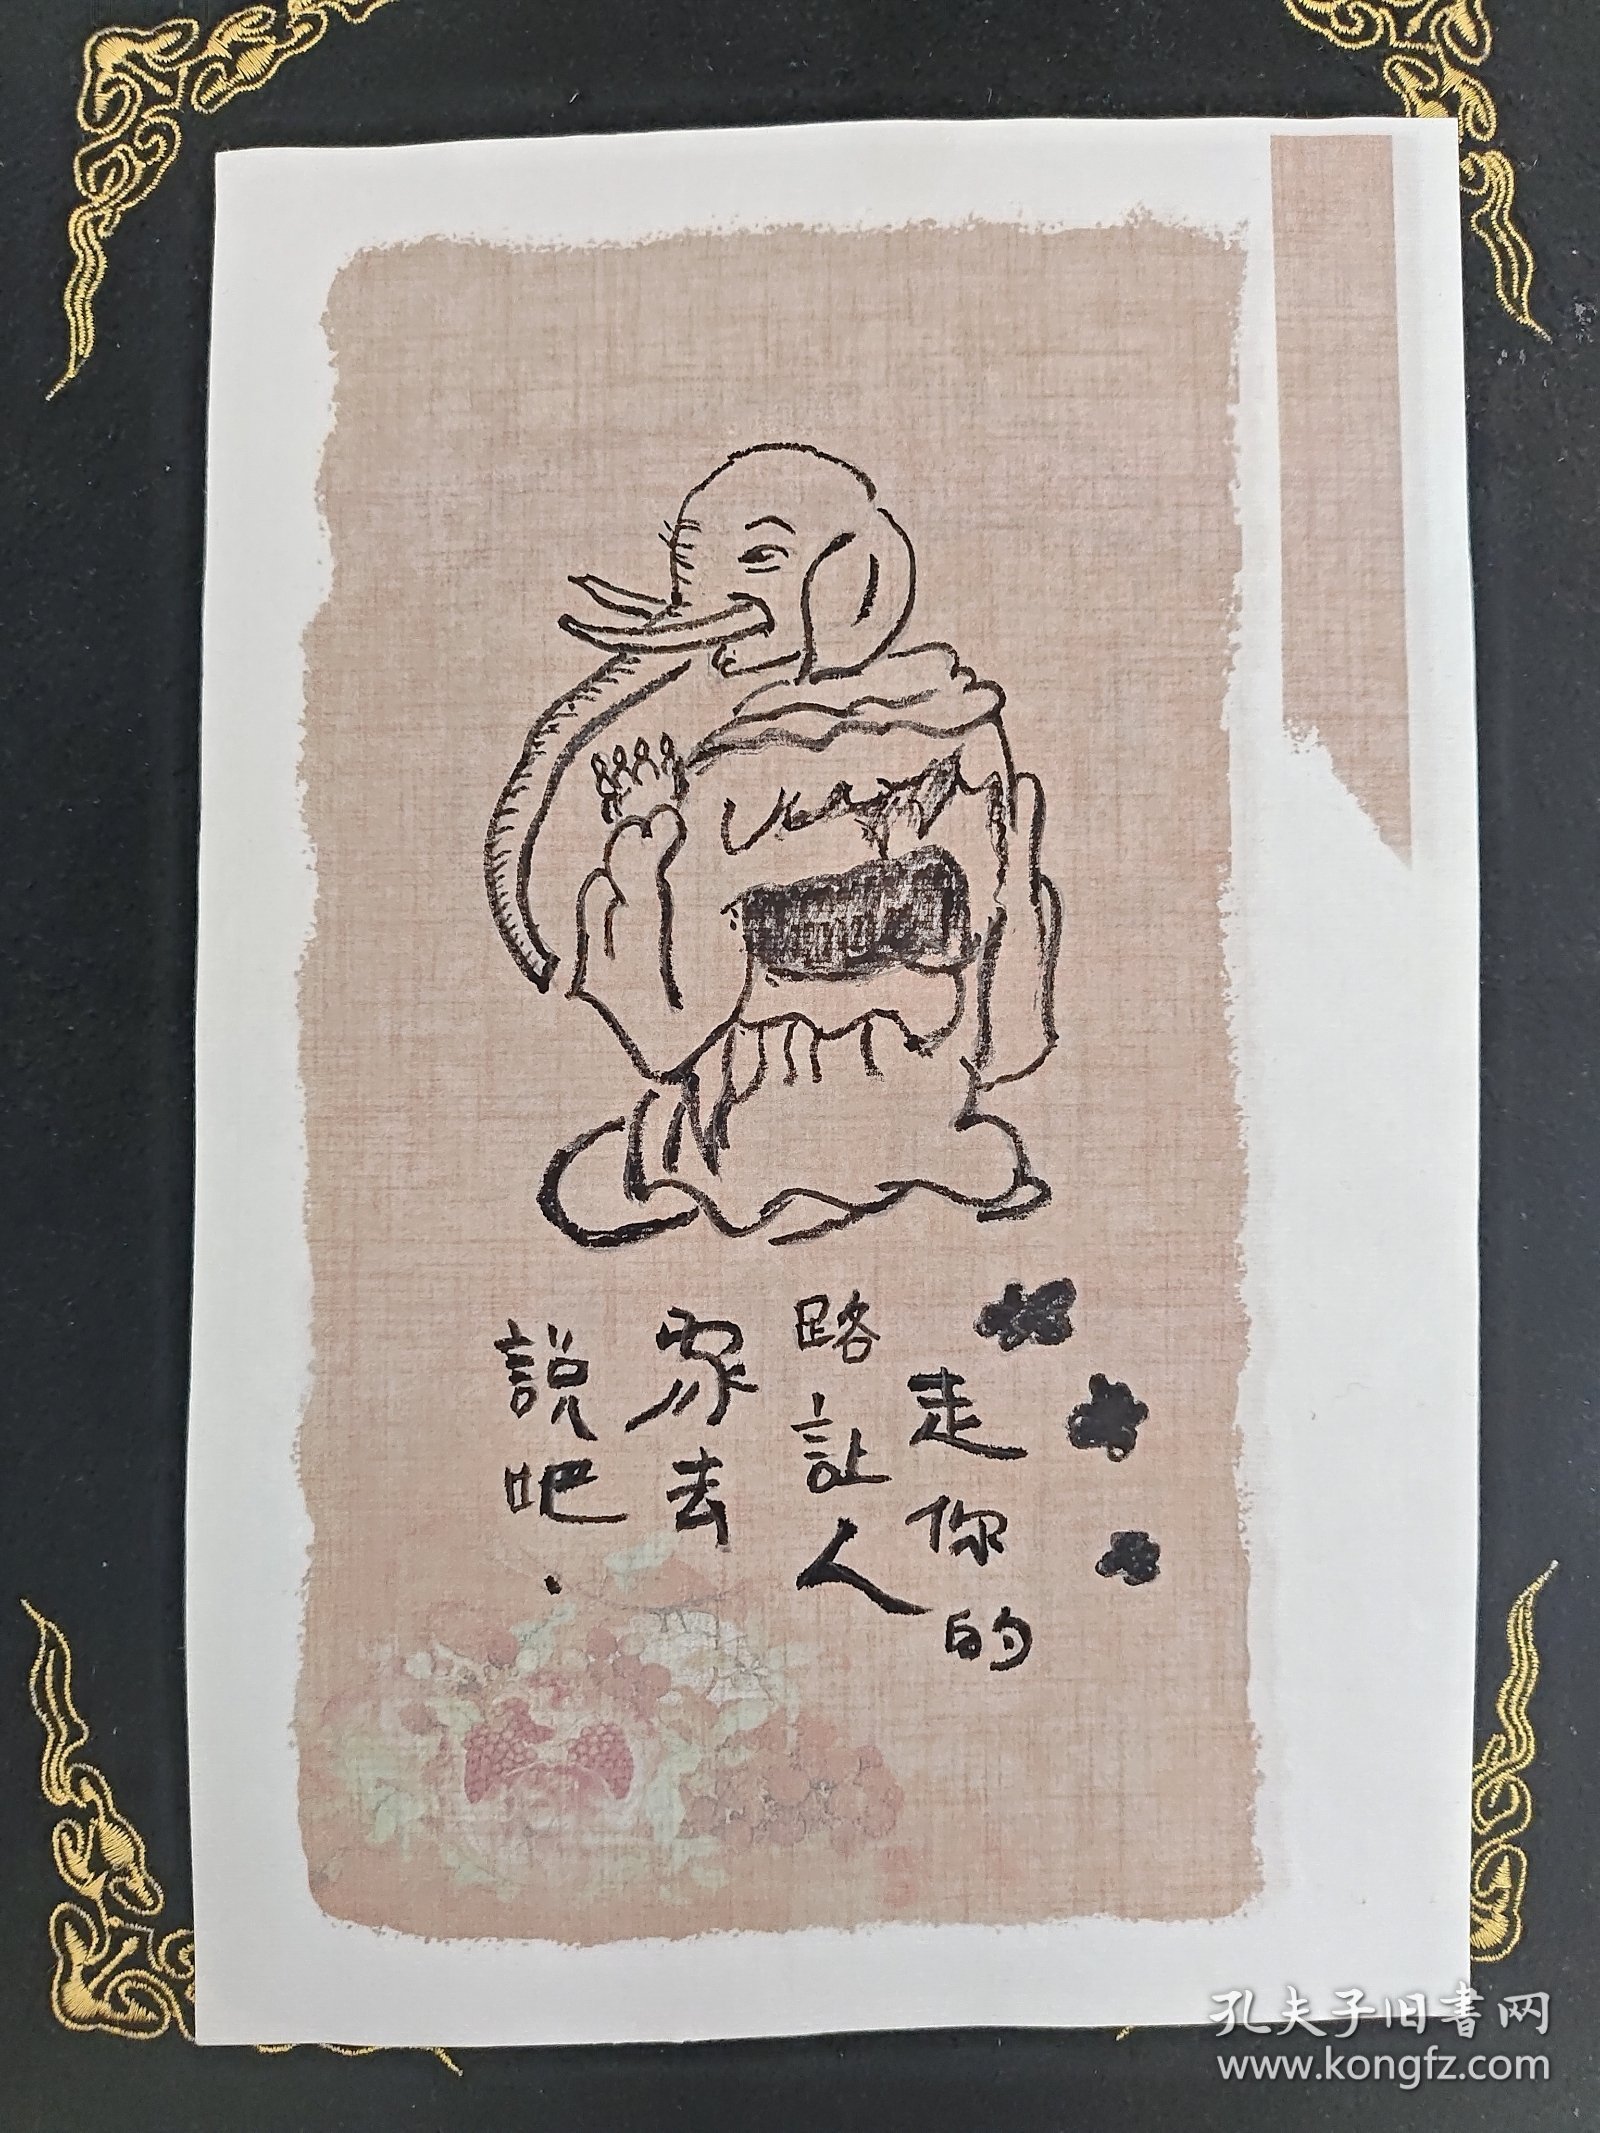 走你的
路让人
家去
説吧.
孔夫子旧书网
www.kongfz.com